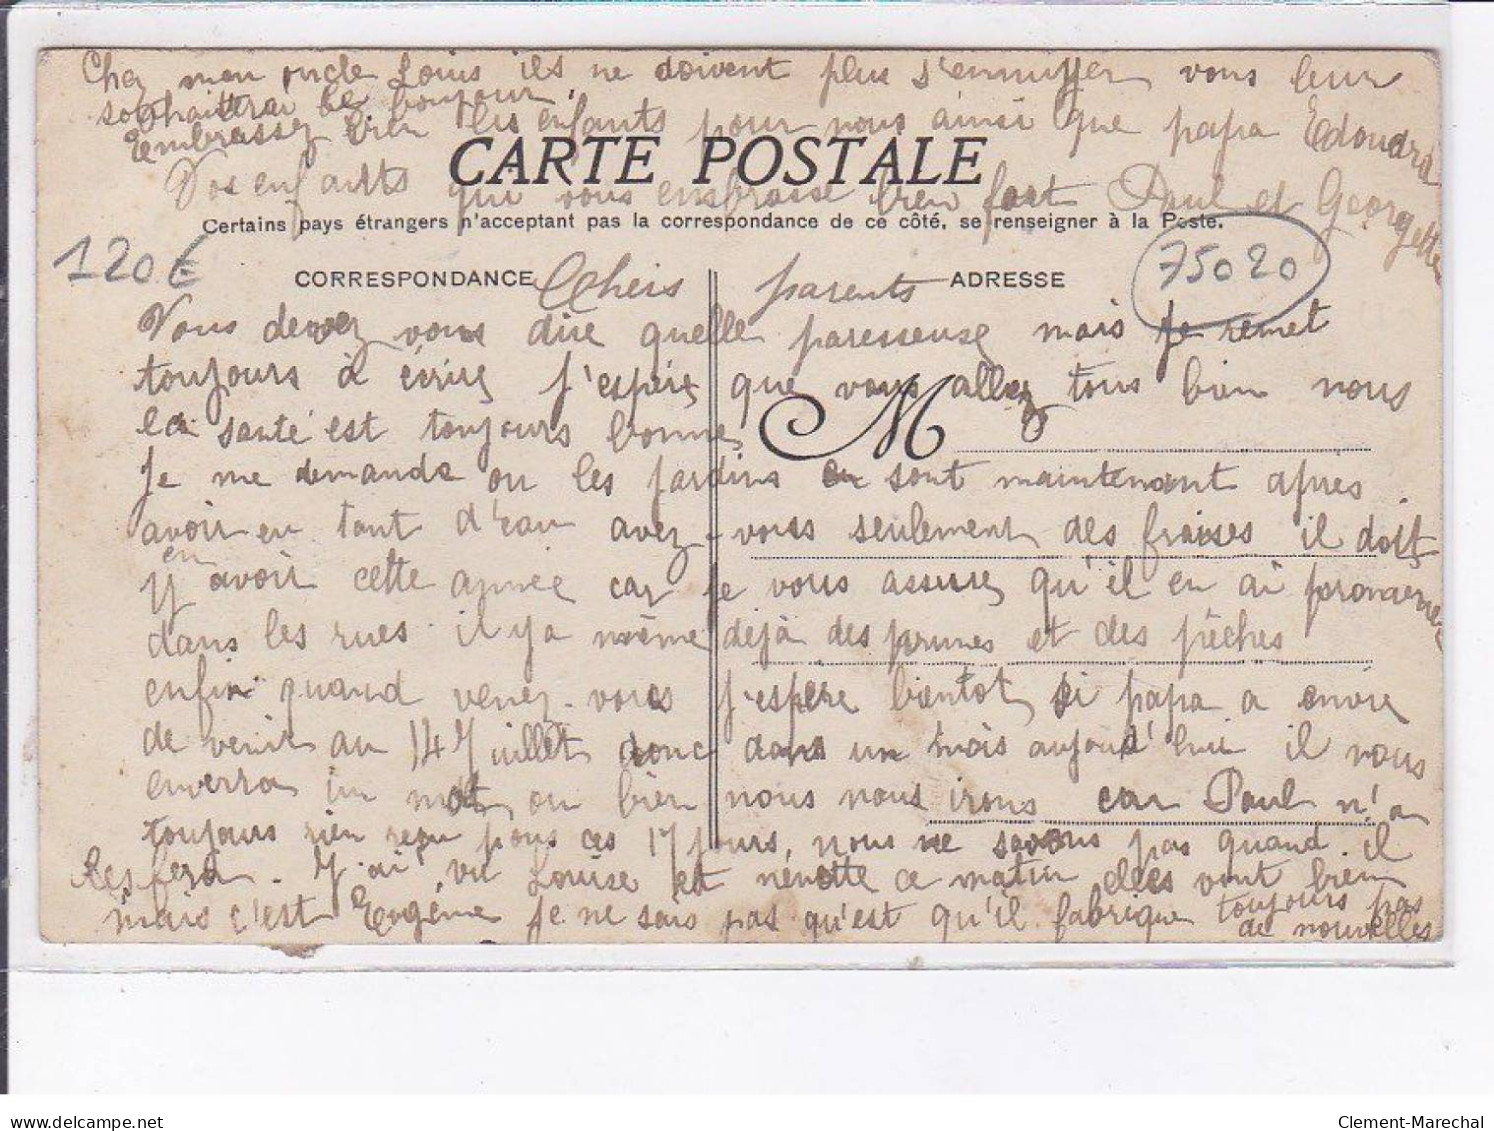 Chez mon oncle Louis ils ne doivent plus s'ennuyer vous leur
souhaitterai le bonjour,
Embrassez bien les enfants pour nous ainsi que papa Edouard
CARTE POSTALE
Vos enfants qui vous embrasse bien fort Paul et Georgette
Certains pays étrangers n'acceptant pas la correspondance de ce côté, se renseigner à la Poste.
120€
75020
CORRESPONDANCE
ADRESSE
Chers parents
Vous devez vous dire quelle paresseuse mais je remet
toujours à écrire j'espère que vous allez tous bien nous
la santé est toujours bonne,
M
Je me demande ou les jardins en sont maintenant après
avoir eu tant d'eau avez-vous seulement des fraises il doit
y en avoir cette année car je vous assure qu'il en ai
dans les rues il y a même déjà des prunes et des pêches
enfin quand venez-vous j'espère bientot, si papa a envie
de venir au 14 Juillet donc dans un mois aujourd'hui il nous
enverra un mot, ou bien nous nous irons car Paul n'a
toujours rien reçu pour ces 17 jours, nous ne savons pas quand il
les fera. J'ai vu Louise et nénette ce matin elles vont bien
mais c'est Eugène je ne sais pas qu'est qu'il fabrique toujours pas
de nouvelles
delcampe.net
Clement-Marechal